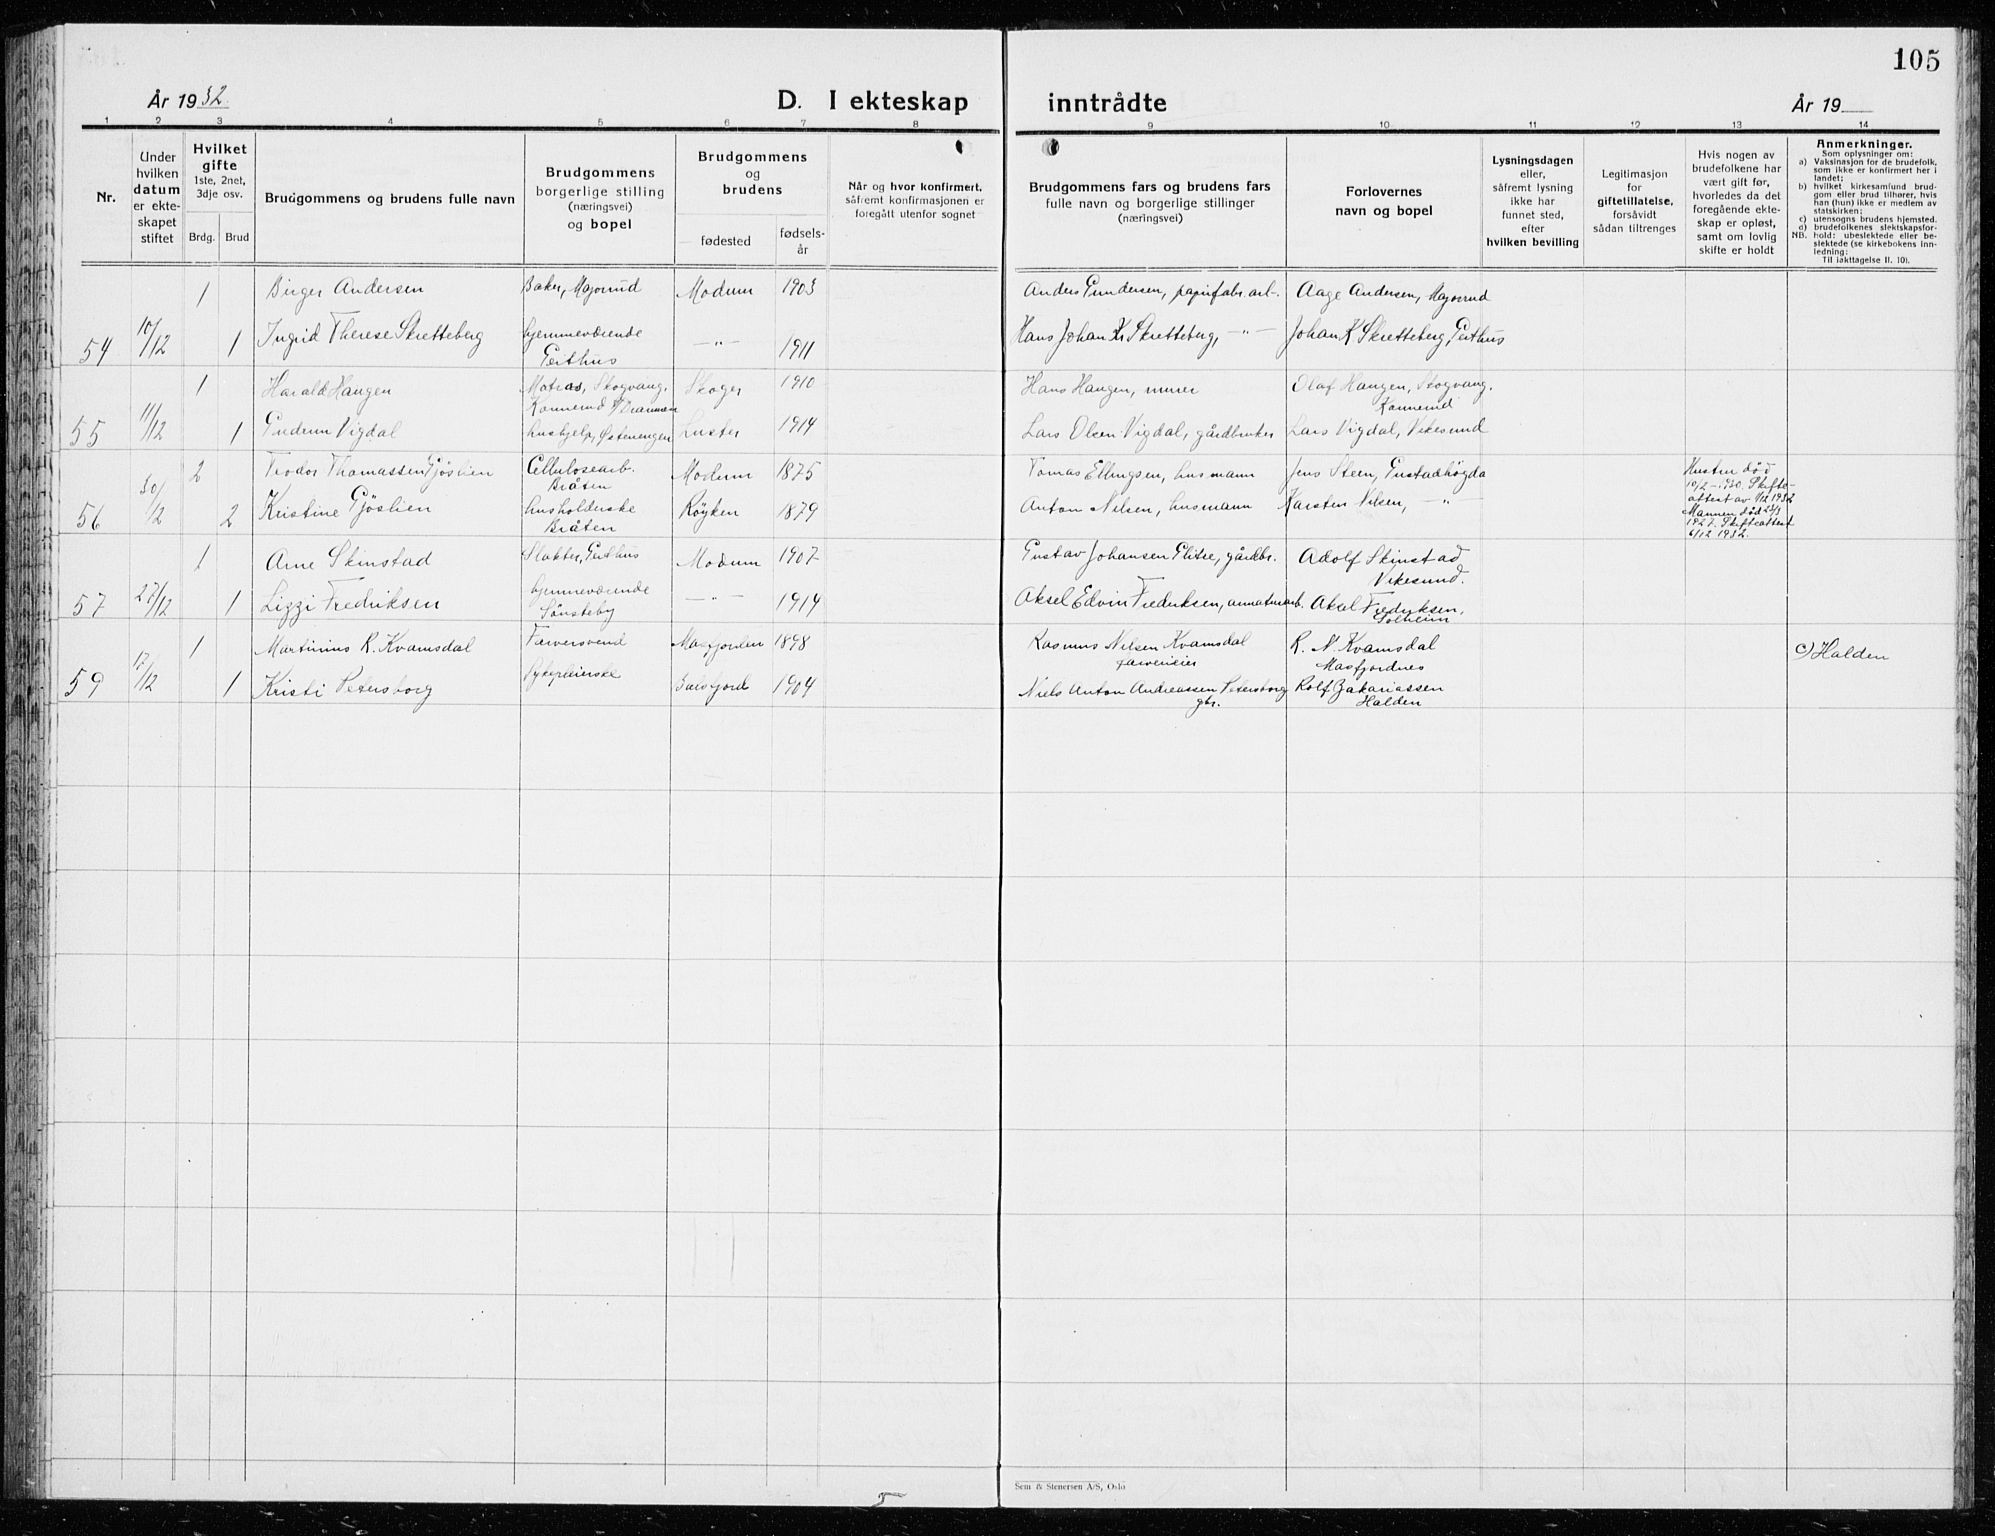 105
År 1932.
D. I ekteskap inntrådte
År 19
1 2 3 4 5 6 7 8 9 10 11 12 13 14
Nr.
Under
hvilken
datum
er ekte-
skapet
stiftet
Hvilket
gifte
1ste, 2net,
3dje osv.
Brdg. Brud
Brudgommens og brudens fulle navn
Brudgommens
borgerlige stilling
(næringsvei)
og bopel
Brudgommens
og
brudens
fødested
fødsels-
år
Når og hvor konfirmert,
såfremt konfirmasjonen er
foregått utenfor sognet
Brudgommens fars og brudens fars
fulle navn og borgerlige stillinger
(næringsvei)
Forlovernes
navn og bopel
Lysningsdagen
eller,
såfremt lysning
ikke har
funnet sted,
efter
hvilken bevilling
Legitimasjon
for
giftetillatelse,
forsåvidt
sådan tiltrenges
Hvis nogen av
brudefolkene har
vært gift før,
hvorledes da det
foregående ekte-
skap er opløst,
samt om lovlig
skifte er holdt
Anmerkninger.
Som oplysninger om:
a) Vaksinasjon for de brudefolk,
som ikke er konfirmert her i
landet;
b) hvilket kirkesamfund brud-
gom eller brud tilhører, hvis
han (hun) ikke er medlem av
statskirken;
c) utensogns brudens hjemsted.
d) brudefolkenes slektskapsfor-
NB. hold: ubeslektede eller be-
slektede (se kirkebokens inn-
ledning:
Til iakttagelse II. 10).
1 Birger Andersen Baker, Majorud Modum 1903 Anders Gundersen, papirfabr. arb. Aage Andersen, Majorud
54 10/12 1 Ingrid Therese Skretteberg hjemmeværende —"— 1911 Hans Johan Kr Skretteberg, —"— Johan K Skretteberg, Geithus
Geithus
1 Harald Haugen Matros, Skogvang, Skoger 1910 Hans Haugen, murer Olaf Haugen, Skogvang,
Konnerud p/ Drammen Konnerud
55 11/12 1 Gudrun Vigdal hushjelp, Østenengen Luster 1914 Lars Olsen Vigdal, gårdbruker Lars Vigdal, Vikesund
2 Teodor Thomassen Gjöslien Cellulosearb. Modum 1875 Tomas Ellingsen, husmann Jens Steen, Gustadhögda
Bråten
56 30/12 2 Kristine Gjöslien husholderske Röyken 1879 Anton Nilsen, husmann Karsten Nilsen, —"—
Bråten
Hustru död
10/2 - 1930. Skifte-
attest av 1/12 1932
Mannen död 23/3
1927. Skifteattest
6/12 1932.
1 Arne Skinstad Slakter, Geithus Modum 1907 Gustav Johansen Glitre, gårdbr. Adolf Skinstad
Vikesund.
57 27/12 1 Lizzi Fredriksen hjemmeværende —"— 1914 Aksel Edvin Fredriksen, armaturarb. Aksel Fredriksen,
Sönsteby Solheim
1 Martinius R. Kvamsdal Farversvend Masfjorden 1898 Rasmus Nilsen Kvamsdal R. N. Kvamsdal c) Halden
farverieier Masfjordnes
59 17/12 1 Kristi Petersborg Sykepleierske Balsfjord 1904 Niels Anton Andreassen Petersborg Rolf Zakariassen
gbr. Halden
Sem & Stenersen A/S, Oslo
5